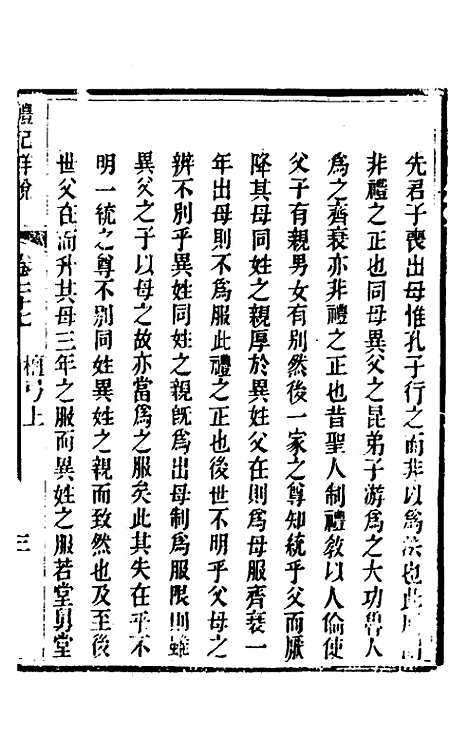 先君子喪出母惟孔子行之而非以爲法也此
非禮之正也同母異父之昆弟子游爲之大功魯人
爲之齊衰亦非禮之正也昔聖人制禮敎以人倫使
父子有親男女有別然後一家之尊知統乎父而厭
降其母同姓之親厚於異姓父在則爲母服齊衰一
年出母則不爲服此禮之正也後世不明乎父母之
辨不別乎異姓同姓之親旣爲出母制爲服限則雖
異父之子以母之故亦當爲之服矣此其失在乎不
明一統之尊不別同姓異姓之親而致然也及至後
世父在而升其母三年之服而異姓之服若堂舅堂
禮記詳說
卷三十七
檀弓上
三